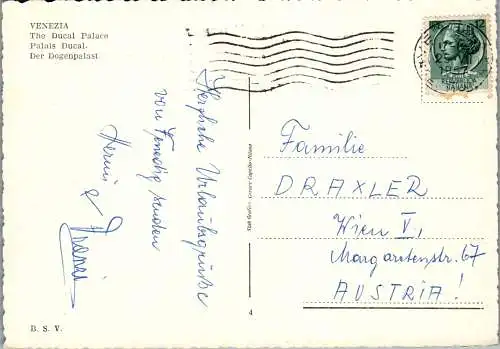 VENEZIA
The Ducal Palace
Palais Ducal.
Der Dogenpalast
Herzliche Urlaubsgrüße
von Venedig senden
Hermi
&
Franz
Familie
DRAXLER
Wien V,
Margaretenstr. 67
AUSTRIA!
4
B. S. V.